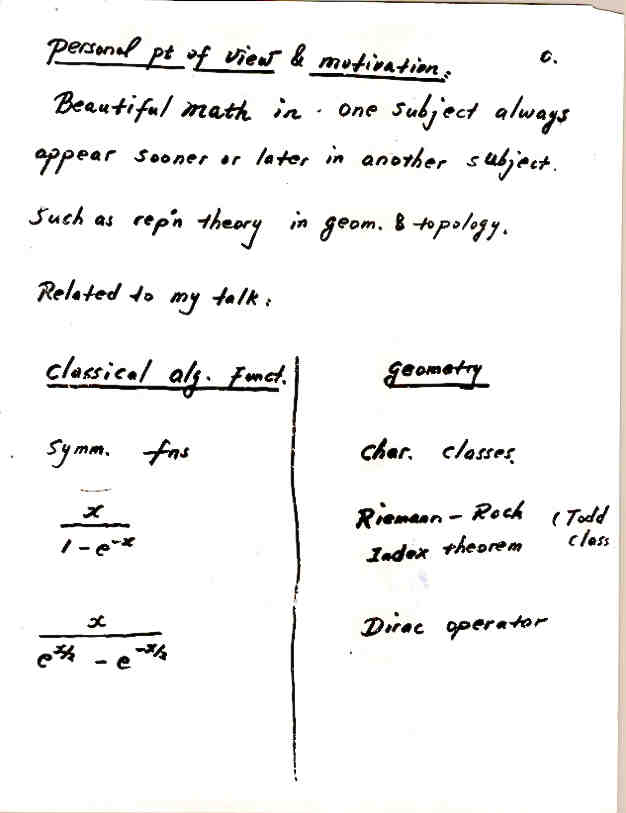 personal pt of view & motivation: 0.
Beautiful math in one subject always
appear sooner or later in another subject.
Such as rep'n theory in geom. & topology.
Related to my talk:
Classical alg. Funct. Geometry
Symm. fns Char. classes.
x/(1 - e^{-x}) Riemann - Roch (Todd class
Index theorem
x/(e^{x/2} - e^{-x/2}) Dirac operator